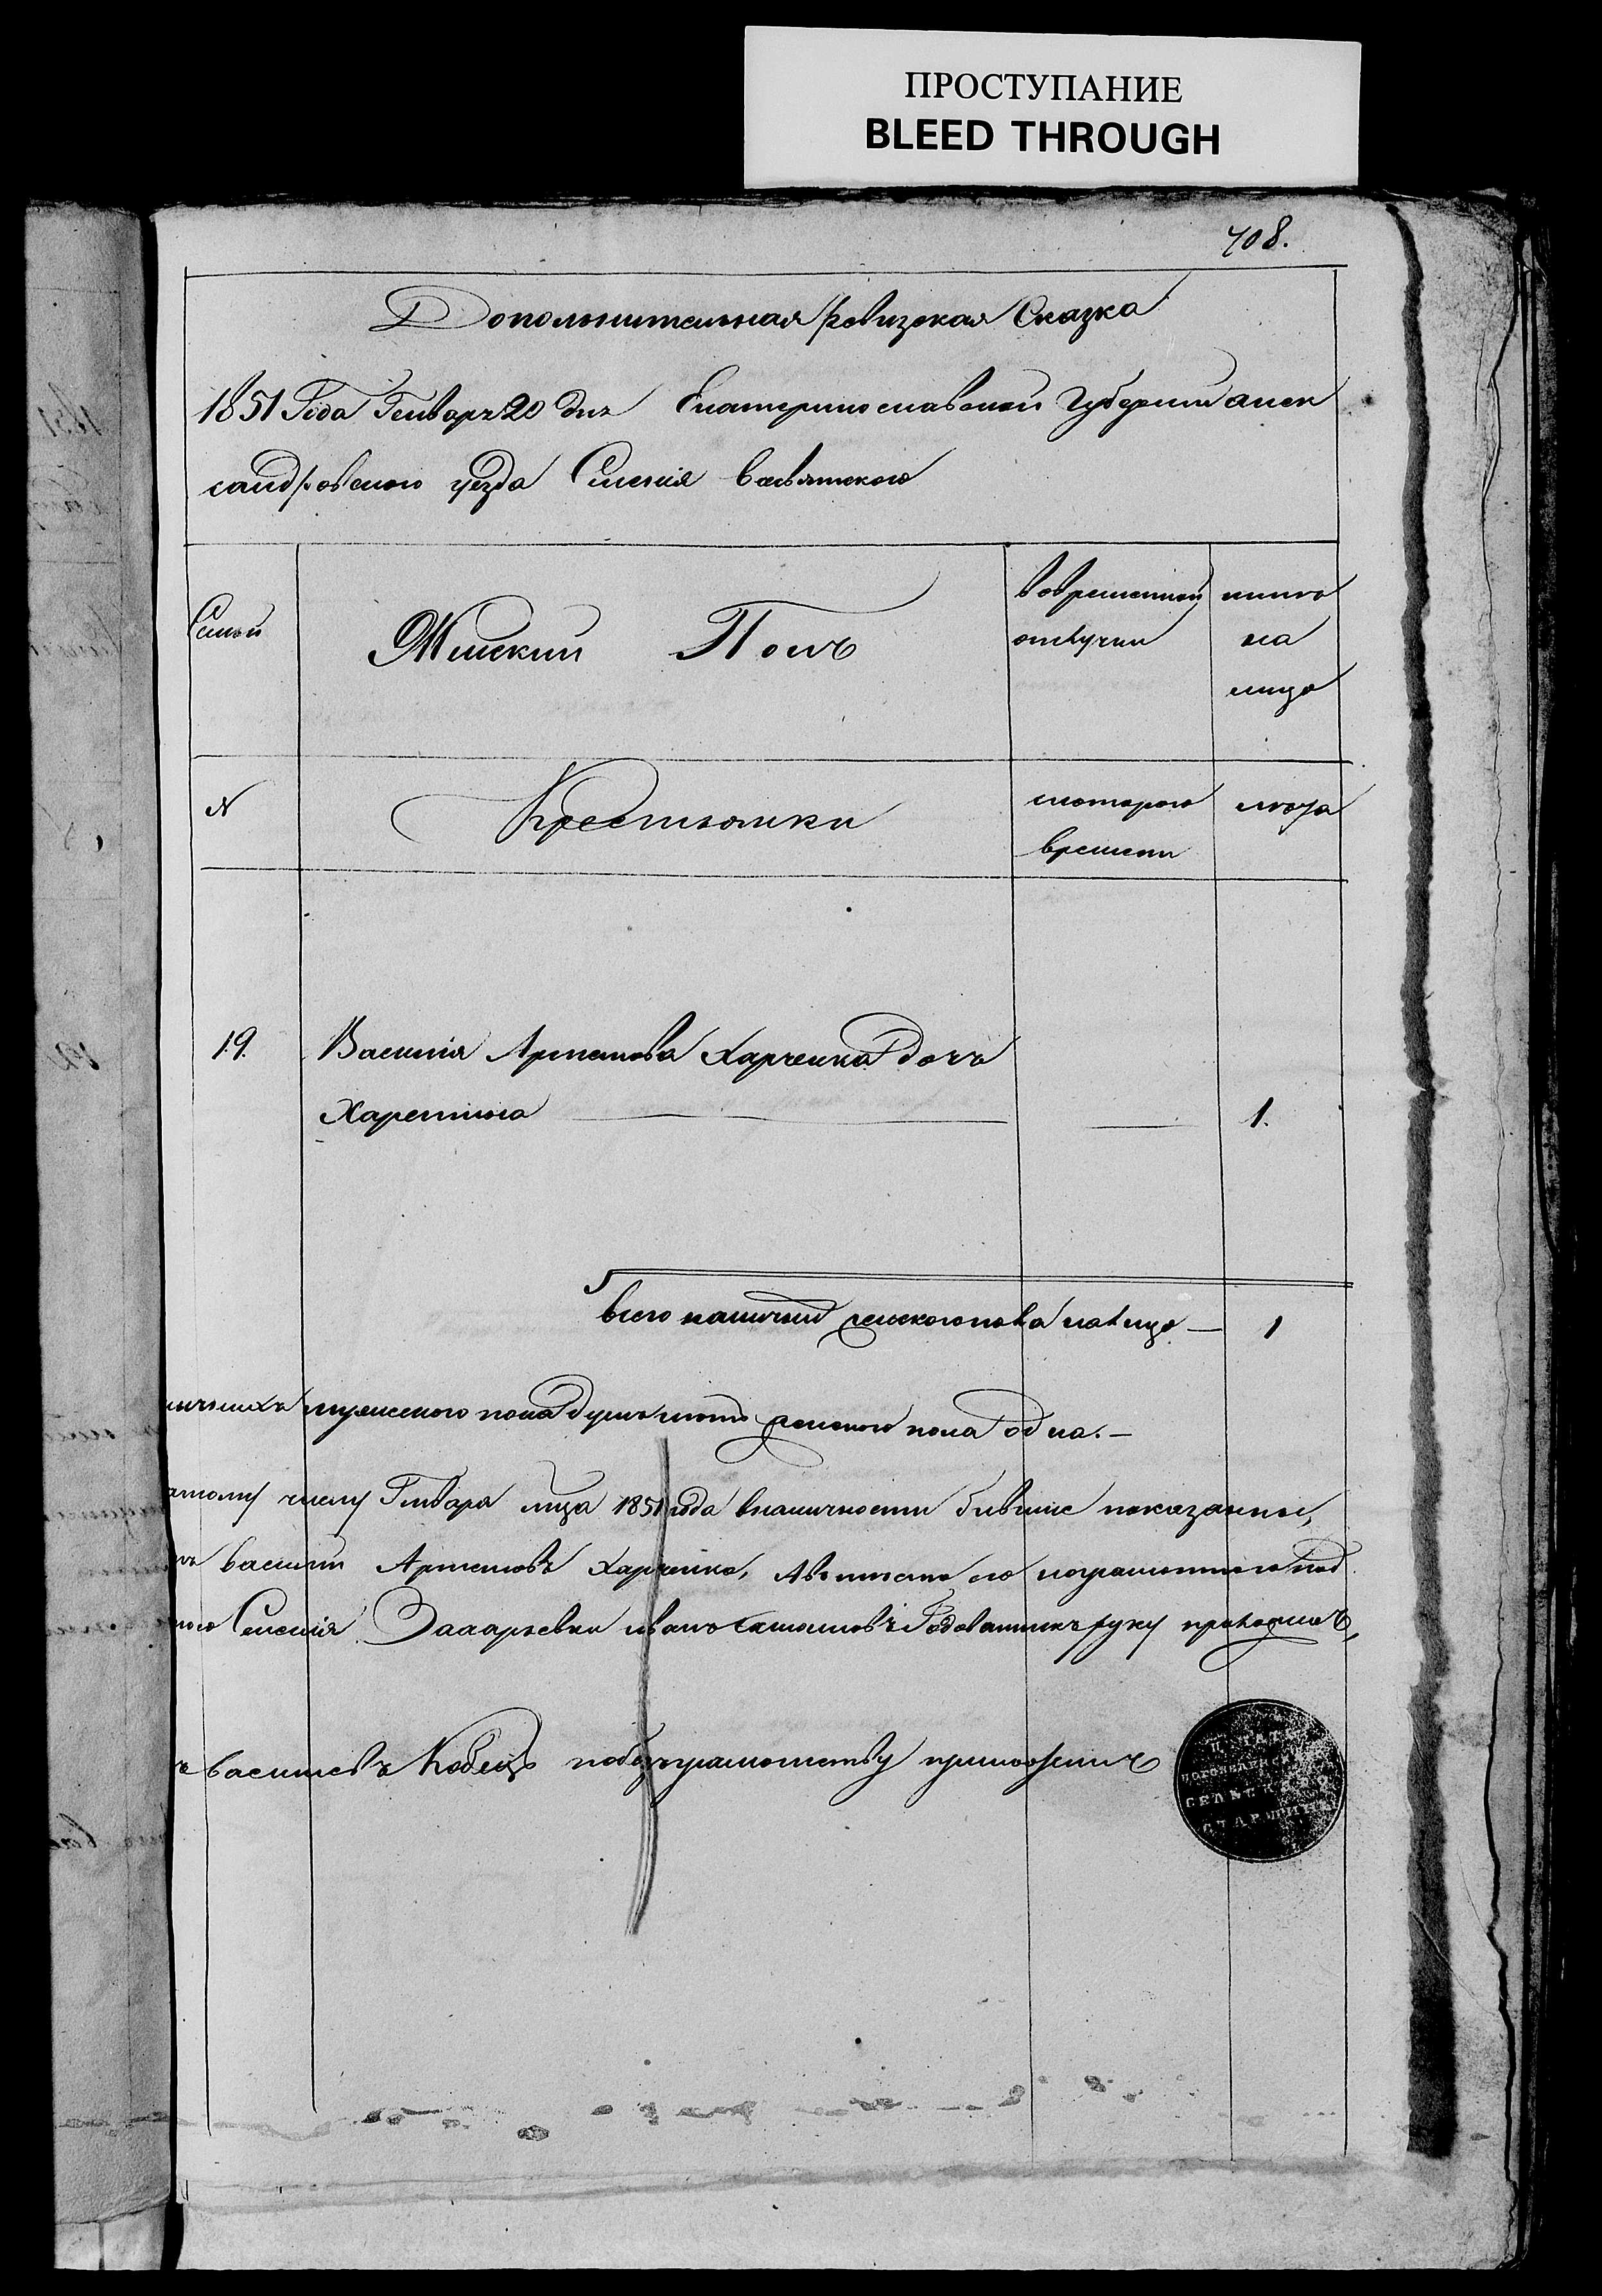 ПРОСТУПАНИЕ
BLEED THROUGH
408.
Дополнительная ревизская Сказка
1851 Года Генваря 20 дня Екатеринославской Губернии алек
сандровского уезда Селения
Семьи
Женский Полъ
вовременной
отлучки
ныне
на
лицо
N
Крестьянки
скоторого
времени
лета
19.
Василия Артемова Харченка дочь
Харетина
1.
всего наличной женского пола налицо — 1
мужеского пола душъ женского пола одна. —
числу Генваря 1851 года вналичности бывшие показаны,
василий Артемовъ Харченко, Авместо его неграмотного
Селения Захарьевки иванъ руку приложилъ,
васильевъ Кобецъ побезграмотству приложилъ
СЕЛЬСКАГО
СТАРШИНЫ